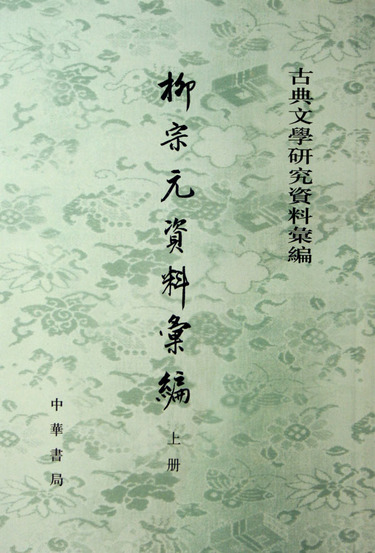 古典文學研究資料彙編
柳宗元資料彙編
上册
中華書局